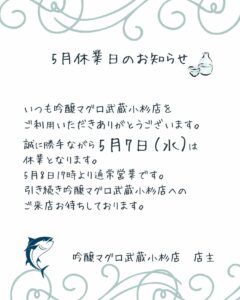 5月休業日のお知らせ
いつも吟醸マグロ武蔵小杉店を
ご利用いただきありがとうございます。
誠に勝手ながら5月7日(水)は
休業となります。
5月8日17時より通常営業です。
引き続き吟醸マグロ武蔵小杉店への
ご来店お待ちしております。
吟醸マグロ武蔵小杉店 店主